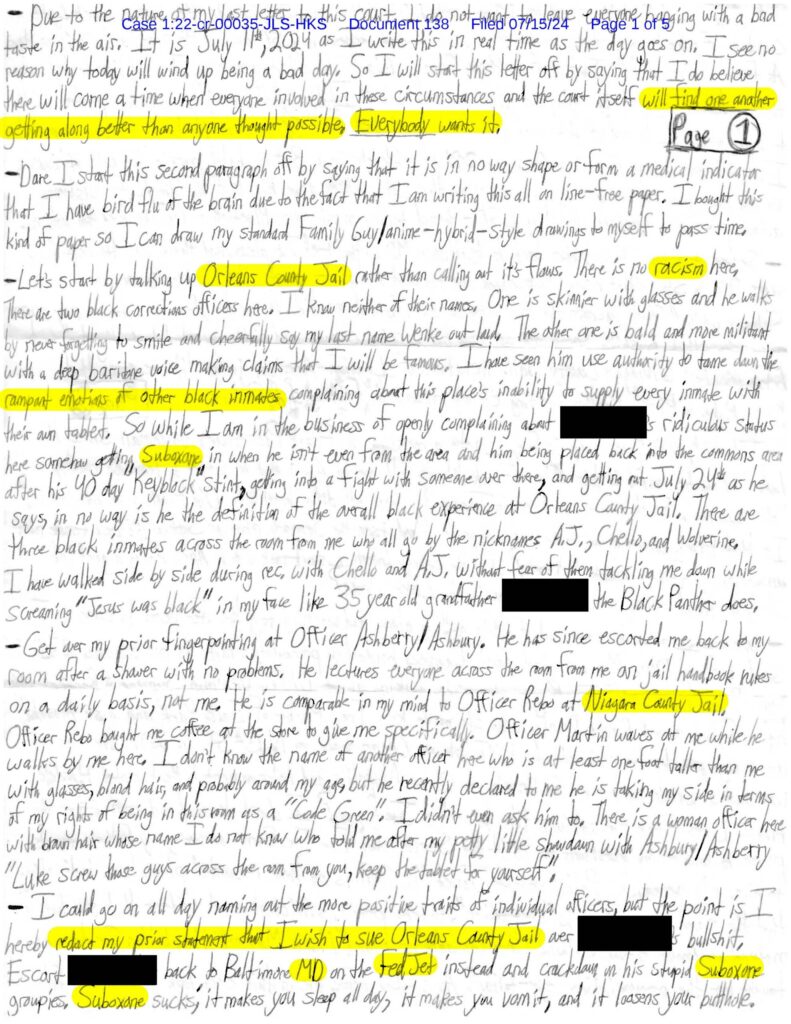 Case 1:22-cr-00035-JLS-HKS Document 138 Filed 07/15/24 Page 1 of 5
- Due to the nature of my last letter to this court I do not want to leave everyone hanging with a bad
taste in the air. It is July 11th, 2024 as I write this in real time as the day goes on. I see no
reason why today will wind up being a bad day. So I will start this letter off by saying that I do believe
there will come a time when everyone involved in these circumstances and the court itself will find one another
getting along better than anyone thought possible. Everybody wants it.
Page 1
- Dare I start this second paragraph off by saying that it is in no way shape or form a medical indicator
that I have bird flu of the brain due to the fact that I am writing this all on line-free paper. I bought this
kind of paper so I can draw my standard Family Guy/anime-hybrid-style drawings to myself to pass time.
- Let's start by talking up Orleans County Jail rather than calling out it's flaws. There is no racism here.
There are two black corrections officers here. I know neither of their names. One is skinnier with glasses and he walks
by never forgetting to smile and cheerfully say my last name Wenke out loud. The other one is bald and more militant
with a deep baritone voice making claims that I will be famous. I have seen him use authority to tame down the
rampant emotions of other black inmates complaining about this place's inability to supply every inmate with
their own tablet. So while I am in the business of openly complaining about 's ridiculous status
here somehow getting Suboxone in when he isn't even from the area and him being placed back into the commons area
after his 40 day "Keylock" stint, getting into a fight with someone over there, and getting out July 24th as he
says, in no way is he the definition of the overall black experience at Orleans County Jail. There are
three black inmates across the room from me who all go by the nicknames A.J., Chello, and Wolverine.
I have walked side by side during rec. with Chello and A.J. without fear of them tackling me down while
screaming "Jesus was black" in my face like 35 year old grandfather the Black Panther does.
- Get over my prior fingerpointing at Officer Ashberry/Ashbury. He has since escorted me back to my
room after a shower with no problems. He lectures everyone across the room from me on jail handbook rules
on a daily basis, not me. He is comparable in my mind to Officer Rebo at Niagara County Jail.
Officer Rebo bought me coffee at the store to give me specifically. Officer Martin waves at me while he
walks by me here. I don't know the name of another officer here who is at least one foot taller than me
with glasses, blond hair, and probably around my age, but he recently declared to me he is taking my side in terms
of my rights of being in this room as a "Code Green". I didn't even ask him to. There is a woman officer here
with brown hair whose name I do not know who told me after my petty little showdown with Ashbury/Ashberry
"Luke screw those guys across the room from you, keep the tablet for yourself".
- I could go on all day naming out the more positive traits of individual officers, but the point is I
hereby redact my prior statement that I wish to sue Orleans County Jail over 's bullshit.
Escort back to Baltimore MD on the Fed Jet instead and crackdown on his stupid Suboxone
groupies. Suboxone sucks, it makes you sleep all day, it makes you vomit, and it loosens your butthole.